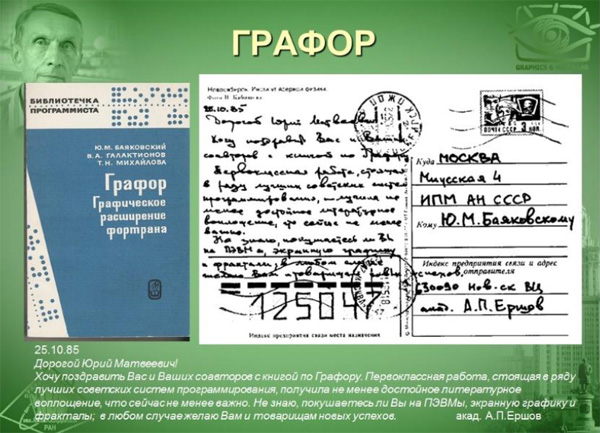 ГРАФОР
БИБЛИОТЕЧКА
ПРОГРАММИСТА
Ю.М. БАЯКОВСКИЙ
В.А. ГАЛАКТИОНОВ
Т.Н. МИХАЙЛОВА
Графор
Графическое
расширение
фортрана
Новосибирск. Институт ядерной физики
Фото В.
25.10.85
Дорогой Юрий Матвеевич!
Хочу поздравить Вас и Ваших
соавторов с книгой по Графору.
Первоклассная работа, стоящая
в ряду лучших советских систем
программирования, получила не
менее достойное литературное
воплощение, что сейчас не менее
важно.
Не знаю, покушаетесь ли Вы
на ПЭВМы, экранную графику
и фракталы; в любом случае
желаю Вам и товарищам новых успехов.
125047
Индекс предприятия связи места назначения
ПОЧТА СССР
Куда МОСКВА
Миусская 4
ИПМ АН СССР
Кому Ю.М.Баяковскому
Индекс предприятия связи и адрес
отправителя
630090 Нов-ск ВЦ
акад. А.П.Ершов
25.10.85
Дорогой Юрий Матвеевич!
Хочу поздравить Вас и Ваших соавторов с книгой по Графору. Первоклассная работа, стоящая в ряду
лучших советских систем программирования, получила не менее достойное литературное
воплощение, что сейчас не менее важно. Не знаю, покушаетесь ли Вы на ПЭВМы, экранную графику и
фракталы; в любом случае желаю Вам и товарищам новых успехов. акад. А.П.Ершов
РАН